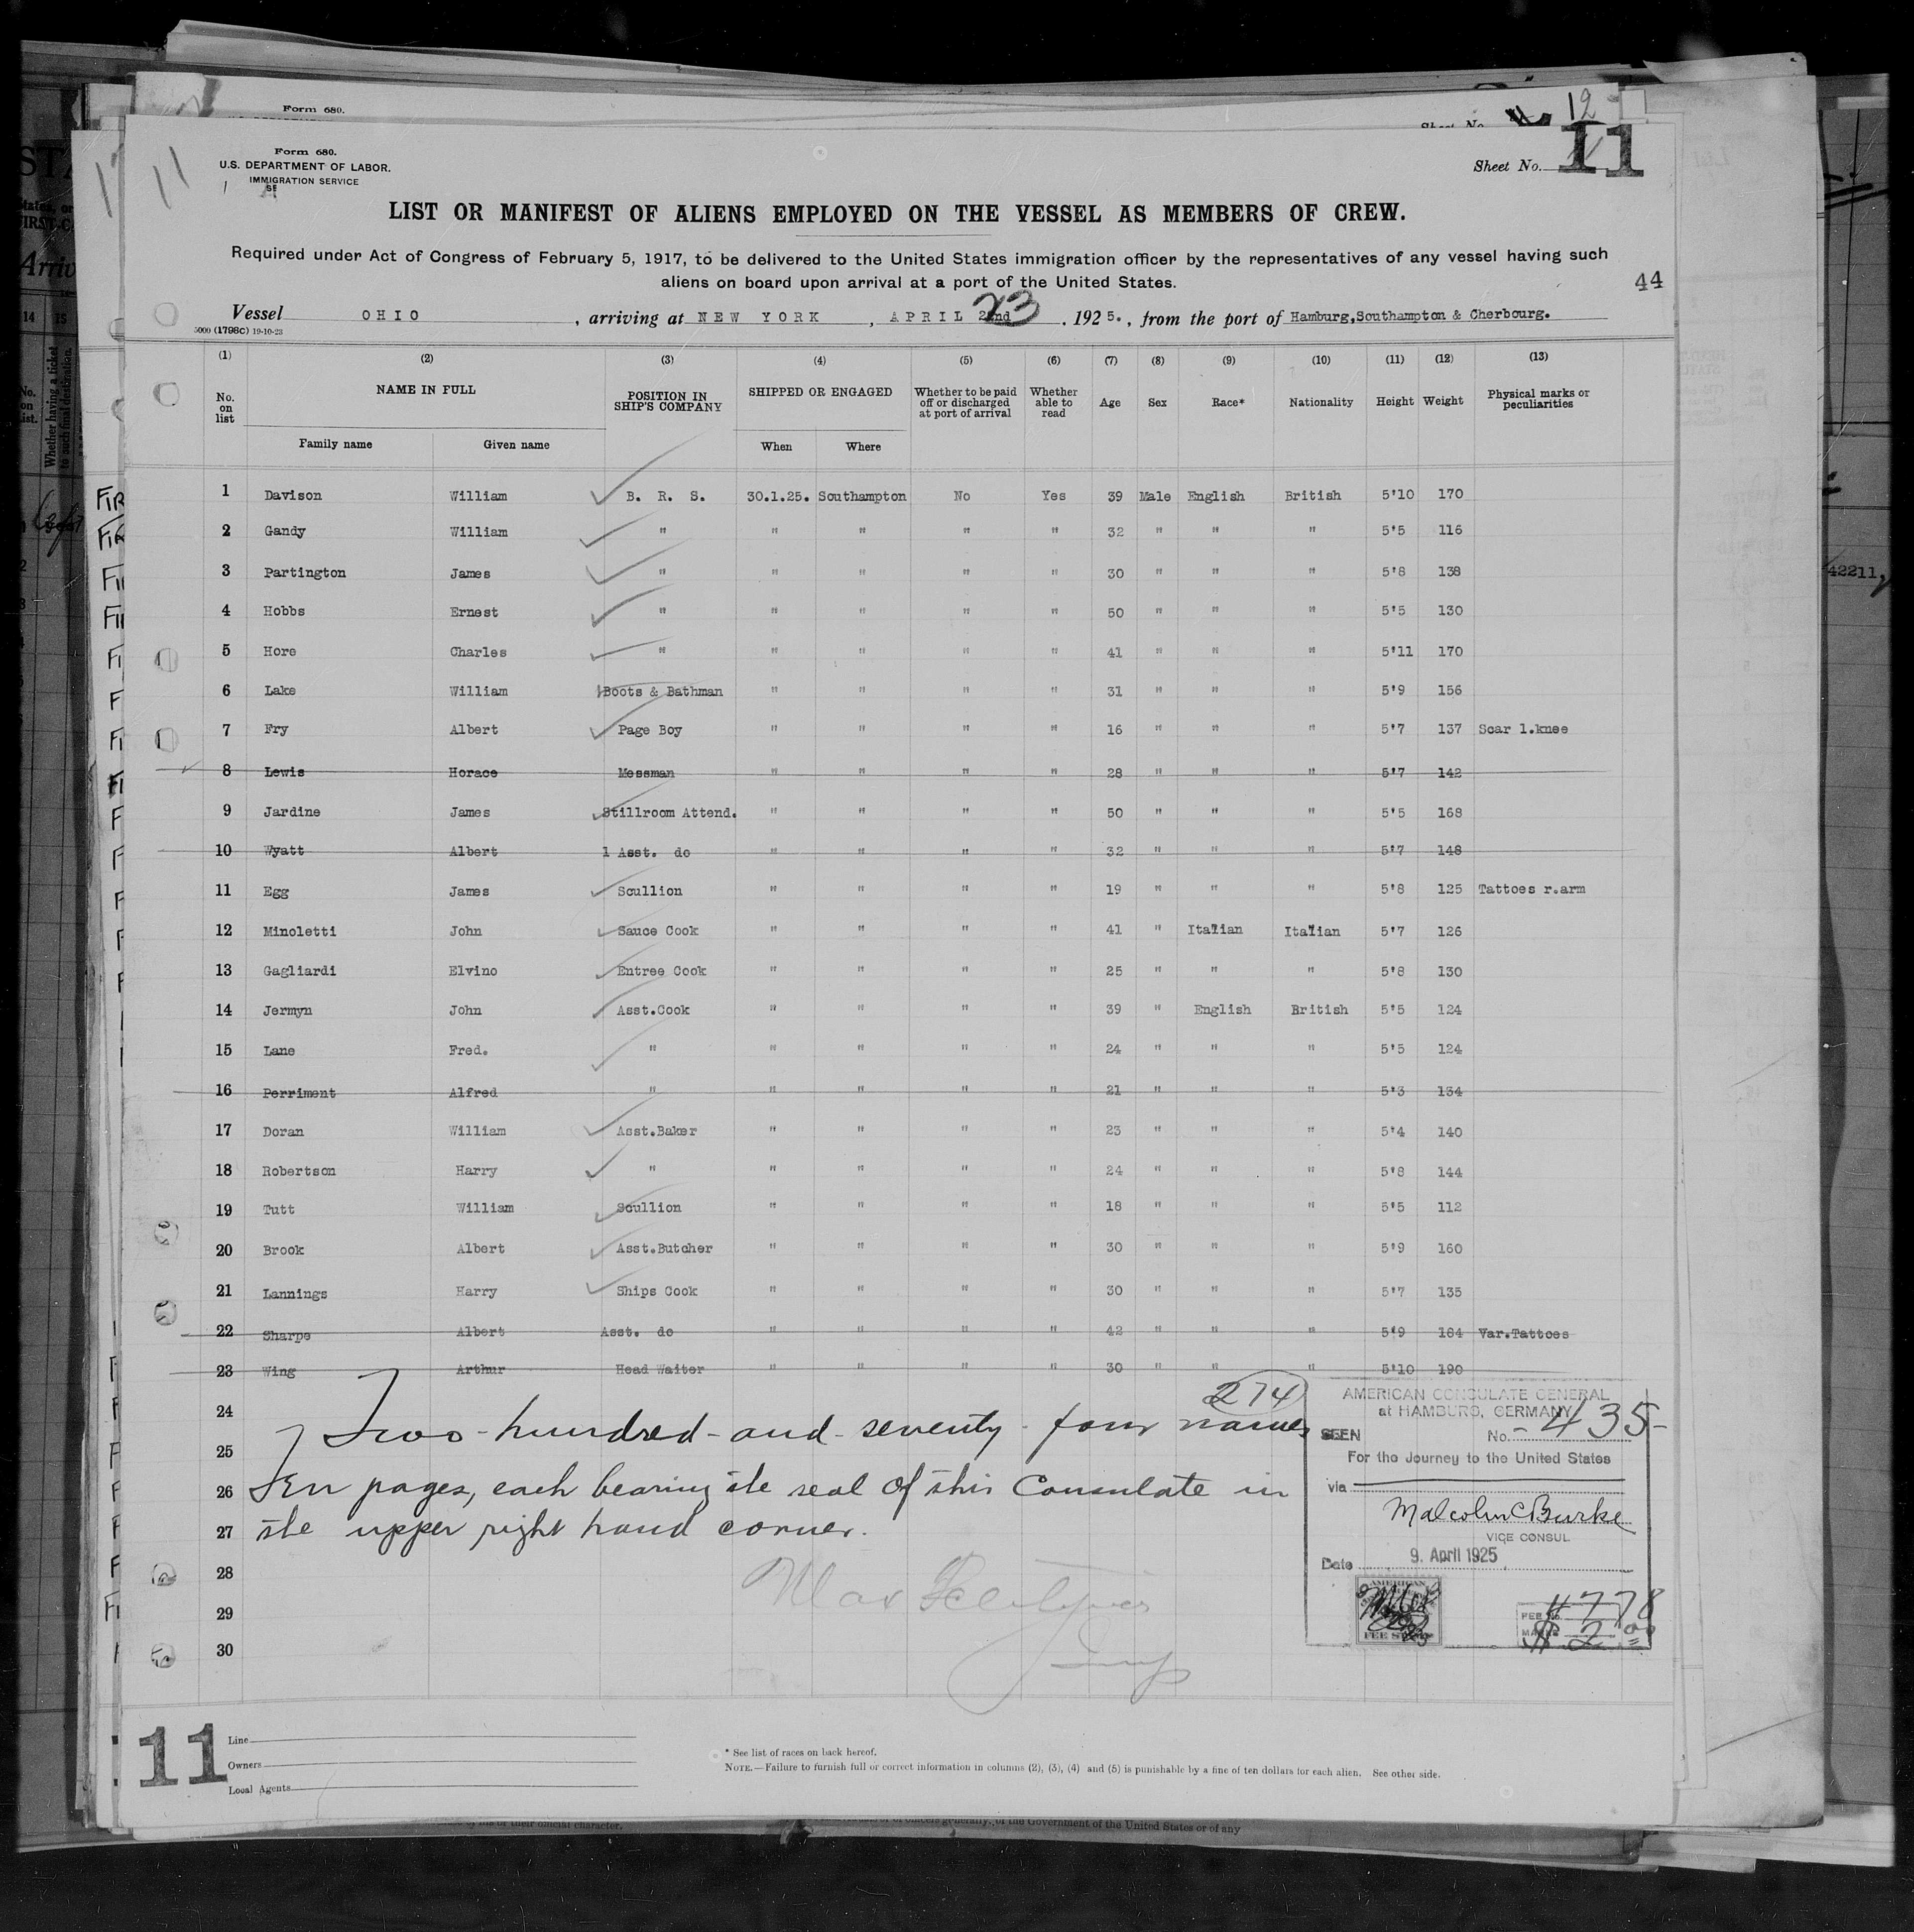 Form 680.
12
Form 680.
U.S. DEPARTMENT OF LABOR.
IMMIGRATION SERVICE
11
Sheet No. 11
LIST OR MANIFEST OF ALIENS EMPLOYED ON THE VESSEL AS MEMBERS OF CREW.
Required under Act of Congress of February 5, 1917, to be delivered to the United States immigration officer by the representatives of any vessel having such
aliens on board upon arrival at a port of the United States.
44
Vessel OHIO, arriving at NEW YORK, APRIL 22nd 23, 1925., from the port of Hamburg,Southampton & Cherbourg.
5000 (1798C) 19-10-23
(1) (2) (3) (4) (5) (6) (7) (8) (9) (10) (11) (12) (13)
No. on list NAME IN FULL POSITION IN SHIP'S COMPANY SHIPPED OR ENGAGED Whether to be paid off or discharged at port of arrival Whether able to read Age Sex Race* Nationality Height Weight Physical marks or peculiarities
Family name Given name When Where
1 Davison William B. R. S. 30.1.25. Southampton No Yes 39 Male English British 5'10 170
2 Gandy William " " " " " 32 " " " 5'5 116
3 Partington James " " " " " 30 " " " 5'8 138
4 Hobbs Ernest " " " " " 50 " " " 5'5 130
5 Hore Charles " " " " " 41 " " " 5'11 170
6 Lake William Boots & Bathman " " " " 31 " " " 5'9 156
7 Fry Albert Page Boy " " " " 16 " " " 5'7 137 Scar l.knee
8 Lewis Horace Messman " " " " 28 " " " 5'7 142
9 Jardine James Stillroom Attend. " " " " 50 " " " 5'5 168
10 Wyatt Albert 1 Asst. do " " " " 32 " " " 5'7 148
11 Egg James Scullion " " " " 19 " " " 5'8 125 Tattoes r.arm
12 Minoletti John Sauce Cook " " " " 41 " Italian Italian 5'7 126
13 Gagliardi Elvino Entree Cook " " " " 25 " " " 5'8 130
14 Jermyn John Asst.Cook " " " " 39 " English British 5'5 124
15 Lane Fred. " " " " " 24 " " " 5'5 124
16 Perriment Alfred " " " " " 21 " " " 5'3 134
17 Doran William Asst.Baker " " " " 23 " " " 5'4 140
18 Robertson Harry " " " " " 24 " " " 5'8 144
19 Tutt William Scullion " " " " 18 " " " 5'5 112
20 Brook Albert Asst.Butcher " " " " 30 " " " 5'9 160
21 Lannings Harry Ships Cook " " " " 30 " " " 5'7 135
22 Sharpe Albert Asst. do " " " " 42 " " " 5'9 184 Var.Tattoes
23 Wing Arthur Head Waiter " " " " 30 " " " 5'10 190
274
24
Two-hundred-and-seventy-four names
25
26 Ten pages, each bearing the seal of this Consulate in
27 the upper right hand corner.
28
29
30
AMERICAN CONSULATE GENERAL
at HAMBURG, GERMANY
SEEN No. -435-
For the Journey to the United States
via
Malcolm C Burke
VICE CONSUL
Date 9. April 1925
AMERICAN
FEE STAMP
FEE No. 4778
$ 2.00
11
Line
Owners
Local Agents
* See list of races on back hereof.
NOTE.—Failure to furnish full or correct information in columns (2), (3), (4) and (5) is punishable by a fine of ten dollars for each alien. See other side.
42211,